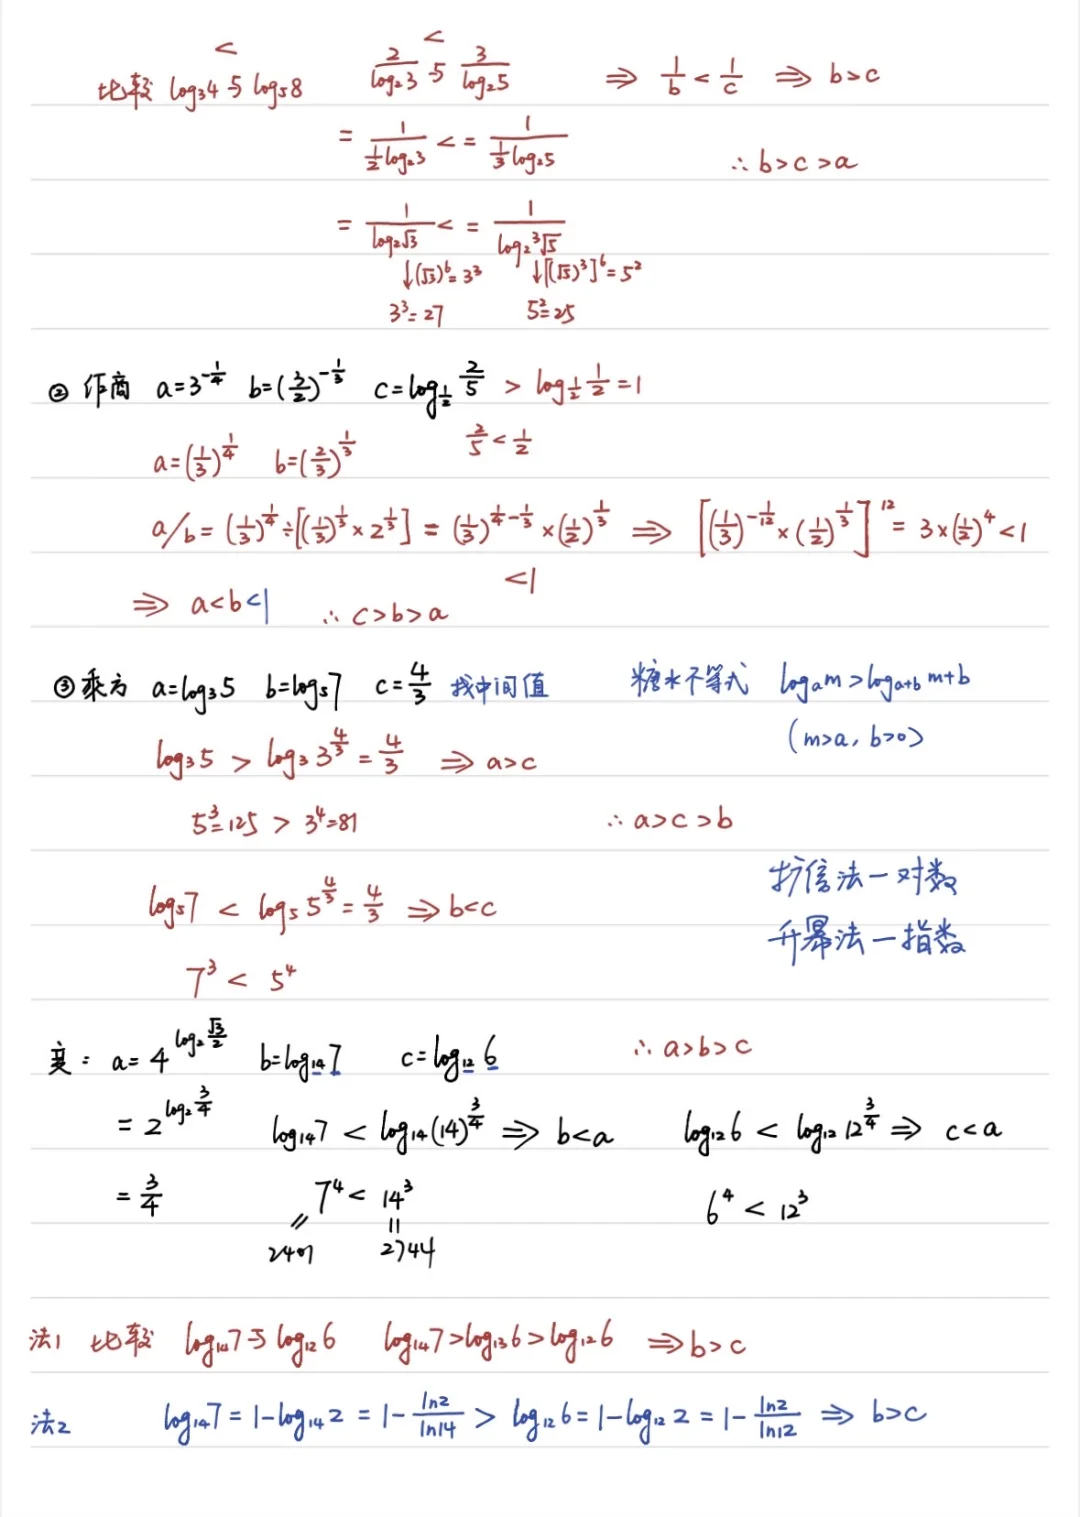 比较 log₃4 与 log₅8  <  2/log₂3 与 3/log₂5  <  ⇒ 1/b < 1/c ⇒ b>c
= 1/(½log₂3) < = 1/(⅓log₂5)  ∴ b>c>a
= 1/log₂√3 < = 1/log₂³√5
↓(√3)⁶=3³  ↓[(√5)³]⁶=5²
3³=27  5²=25
② 作商 a=3^(-1/4)  b=(3/2)^(-1/3)  c=log_(1/2) 2/5 > log_(1/2) 1/2 =1
a=(1/3)^(1/4)  b=(2/3)^(1/3)  2/5 < 1/2
a/b = (1/3)^(1/4) ÷ [(1/3)^(1/3) × 2^(1/3)] = (1/3)^(1/4-1/3) × (1/2)^(1/3) ⇒ [(1/3)^(-1/12) × (1/2)^(1/3)]^12 = 3×(1/2)⁴ <1
<1
⇒ a<b<1  ∴ c>b>a
③ 乘方 a=log₃5  b=log₅7  c=4/3 找中间值  糖水不等式 logₐm > logₐ₊b m+b
(m>a, b>0)
log₃5 > log₃3^(4/3) = 4/3 ⇒ a>c
5³=125 > 3⁴=81  ∴ a>c>b
扩倍法—对数
log₅7 < log₅5^(4/3) = 4/3 ⇒ b<c
升幂法—指数
7³ < 5⁴
变: a=4^(log₂ √3/2)  b=log₁₄7  c=log₁₂6  ∴ a>b>c
= 2^(log₂ 3/4)  log₁₄7 < log₁₄(14)^(3/4) ⇒ b<a  log₁₂6 < log₁₂12^(3/4) ⇒ c<a
= 3/4  7⁴ < 14³  6⁴ < 12³
= =
2401  2744
法1 比较 log₁₄7 与 log₁₂6  log₁₄7 > log₁₃6 > log₁₂6 ⇒ b>c
法2 log₁₄7 = 1-log₁₄2 = 1- ln2/ln14 > log₁₂6 = 1-log₁₂2 = 1- ln2/ln12 ⇒ b>c